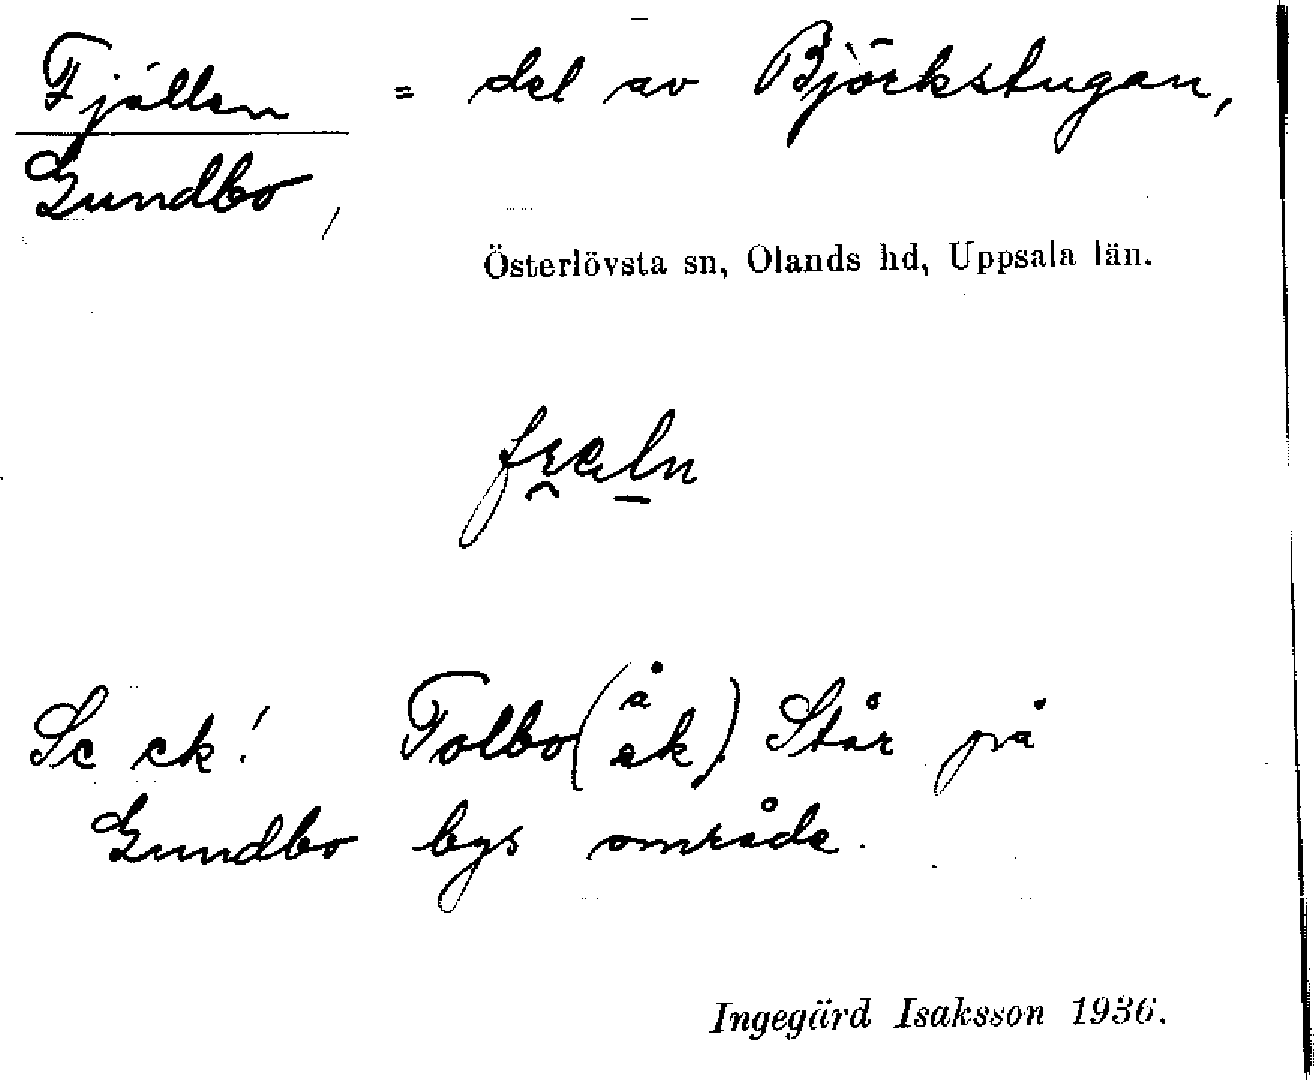 Fjällen = del av Björkstugan,
Gundbo,
Österlövsta sn, Olands hd, Uppsala län.
Se ek! Tolbo (å äk) Står på
Gundbo bys område.
Ingegärd Isaksson 1936.